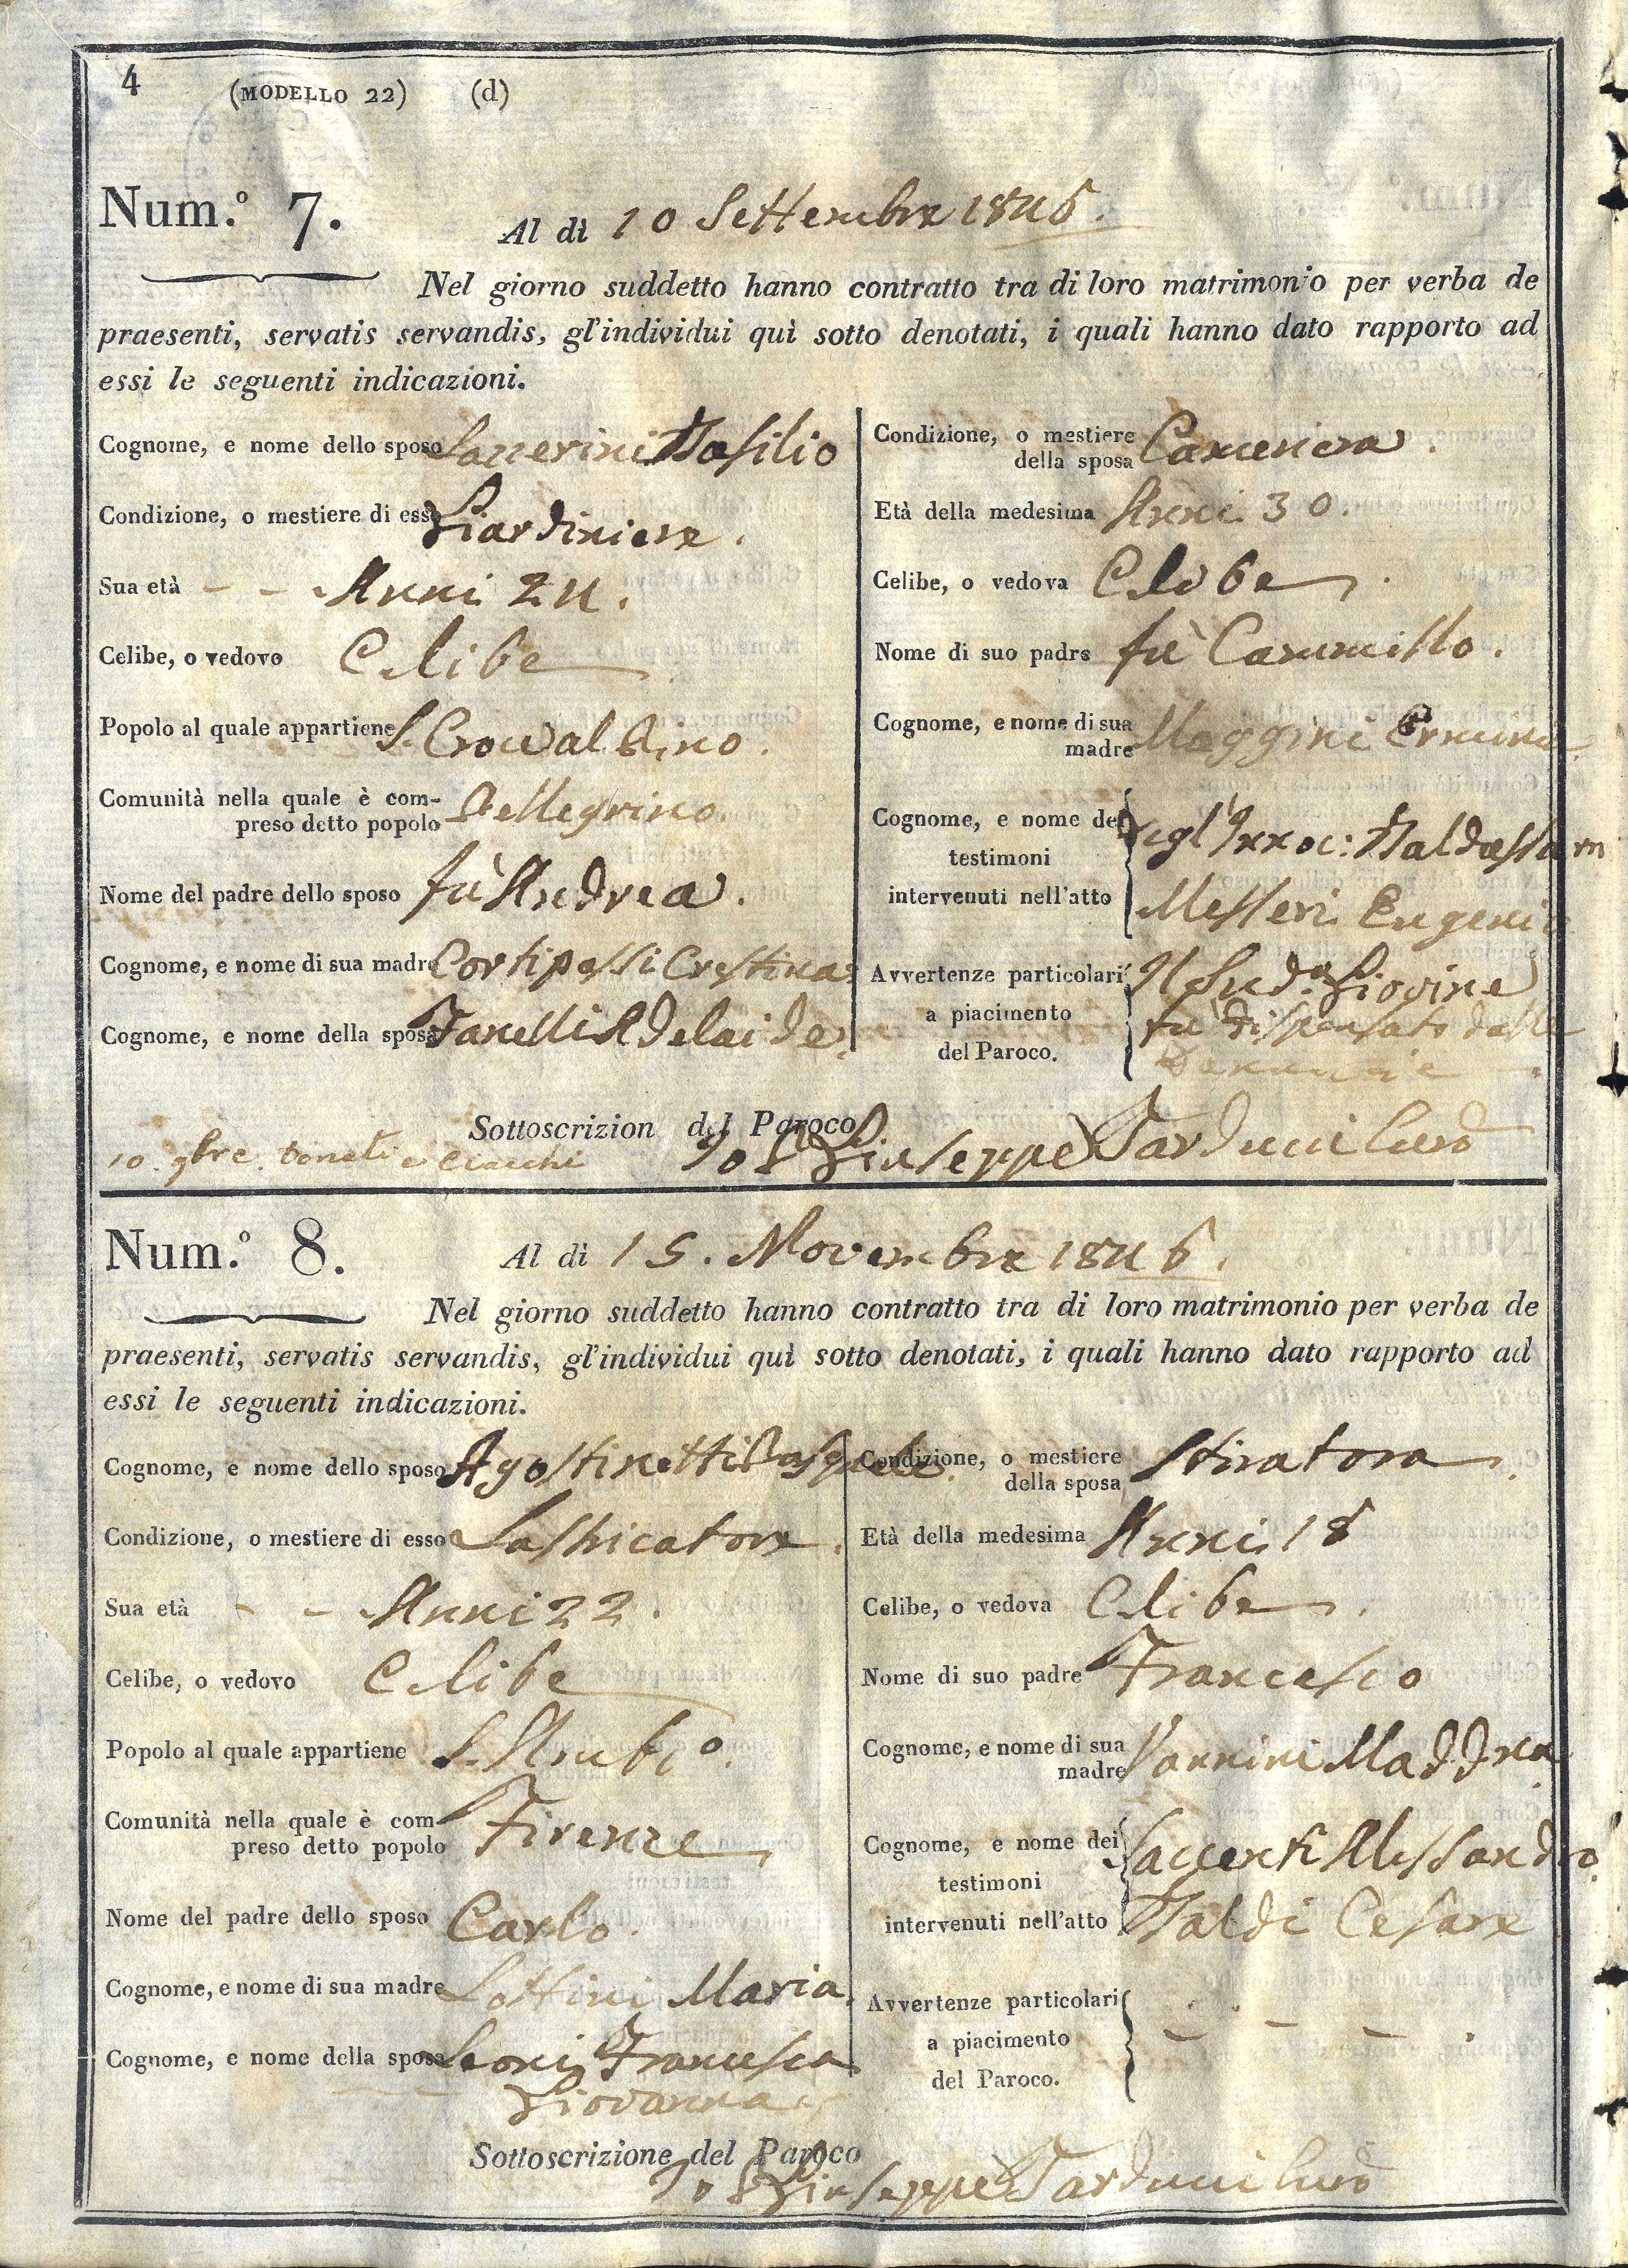 4 (MODELLO 22) (d)
Num.º 7. Al dì 10 Settembre 1846.
Nel giorno suddetto hanno contratto tra di loro matrimonio per verba de
praesenti, servatis servandis, gl'individui quì sotto denotati, i quali hanno dato rapporto ad
essi le seguenti indicazioni.
Cognome, e nome dello sposo Basilio
Condizione, o mestiere di esso Giardiniere.
Sua età - - Anni 24.
Celibe, o vedovo Celibe
Popolo al quale appartiene S.
Comunità nella quale è com-
preso detto popolo Pellegrino.
Nome del padre dello sposo fù Andrea.
Cognome, e nome di sua madre Cortipassi Crestina
Cognome, e nome della sposa Fanelli Adelaide.
Condizione, o mestiere
della sposa Cameriera.
Età della medesima Anni 30.
Celibe, o vedova Celibe.
Nome di suo padre fù Cammillo.
Cognome, e nome di sua
madre Maggini
Cognome, e nome dei
testimoni
intervenuti nell'atto
Degl'Innoc: Baldassarre
Messeri Eugenio
Avvertenze particolari
a piacimento
del Paroco.
Il Sud.º Giovine
fù dispensato dalle
Denunzie
Sottoscrizion del Paroco
Io P Giuseppe Tarducci Curº
10. 9bre. Donati e Ciacchi
Num.º 8. Al dì 15. Novembre 1846.
Nel giorno suddetto hanno contratto tra di loro matrimonio per verba de
praesenti, servatis servandis, gl'individui quì sotto denotati, i quali hanno dato rapporto ad
essi le seguenti indicazioni.
Cognome, e nome dello sposo Agostinetti Pasquale.
Condizione, o mestiere di esso Lastricatore.
Sua età - - Anni 22.
Celibe, o vedovo Celibe
Popolo al quale appartiene S. Ambº.
Comunità nella quale è com
preso detto popolo Firenze
Nome del padre dello sposo Carlo.
Cognome, e nome di sua madre Lottini Maria.
Cognome, e nome della sposa Leoni Francesca
Giovanna
Condizione, o mestiere
della sposa Stiratora.
Età della medesima Anni 18
Celibe, o vedova Celibe.
Nome di suo padre Francesco
Cognome, e nome di sua
madre Vannini Maddna.
Cognome, e nome dei
testimoni
intervenuti nell'atto
Saccenti Alessandro
Baldi Cesare
Avvertenze particolari
a piacimento
del Paroco.
- - - .
Sottoscrizione del Paroco
Io P Giuseppe Tarducci Curº